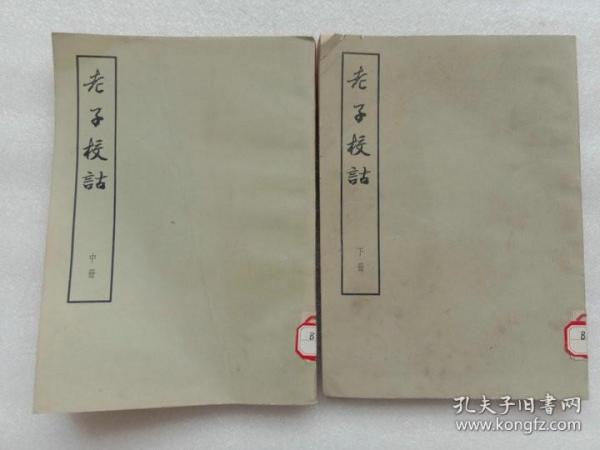 老子校詁
中册
老子校詁
下册
B
B
孔夫子旧书网
www.kongfz.com